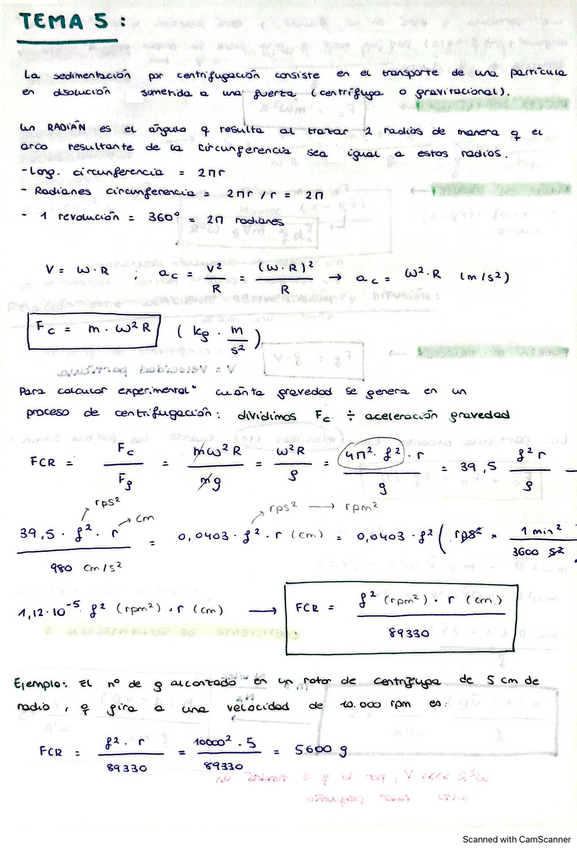 TEMA 5 :
La sedimentación por centrifugación consiste en el transporte de una partícula
en disolución sometida a una fuerza (centrífuga o gravitacional).
Un RADIÁN es el ángulo q resulta al trazar 2 radios de manera q el
arco resultante de la circunferencia sea igual a estos radios.
- Long. circunferencia = 2πr
- Radianes circunferencia = 2πr / r = 2π
- 1 revolución = 360° = 2π radianes
V = ω · R ; a_c = V² / R = (ω · R)² / R → a_c = ω² · R (m/s²)
F_c = m · ω² R ( kg · m / s² )
Para calcular experimental^e cuánta gravedad se genera en un
proceso de centrifugación : dividimos Fc ÷ aceleración gravedad
FCR = F_c / F_g = mω²R / mg = ω²R / g = 4π² · f² · r / g = 39,5 f² r / g
39,5 · f² · r / 980 cm/s² = 0,0403 · f² · r (cm) = 0,0403 · f² ( rps² × 1 min² / 3600 s²
rps² cm rps² → rpm²
1,12·10⁻⁵ f² (rpm²) · r (cm) → FCR = f² (rpm²) · r (cm) / 89330
Ejemplo: El nº de g alcanzado en un rotor de centrífuga de 5 cm de
radio, q gira a una velocidad de 10.000 rpm es:
FCR = f² · r / 89330 = 10000² · 5 / 89330 = 5600 g
Scanned with CamScanner